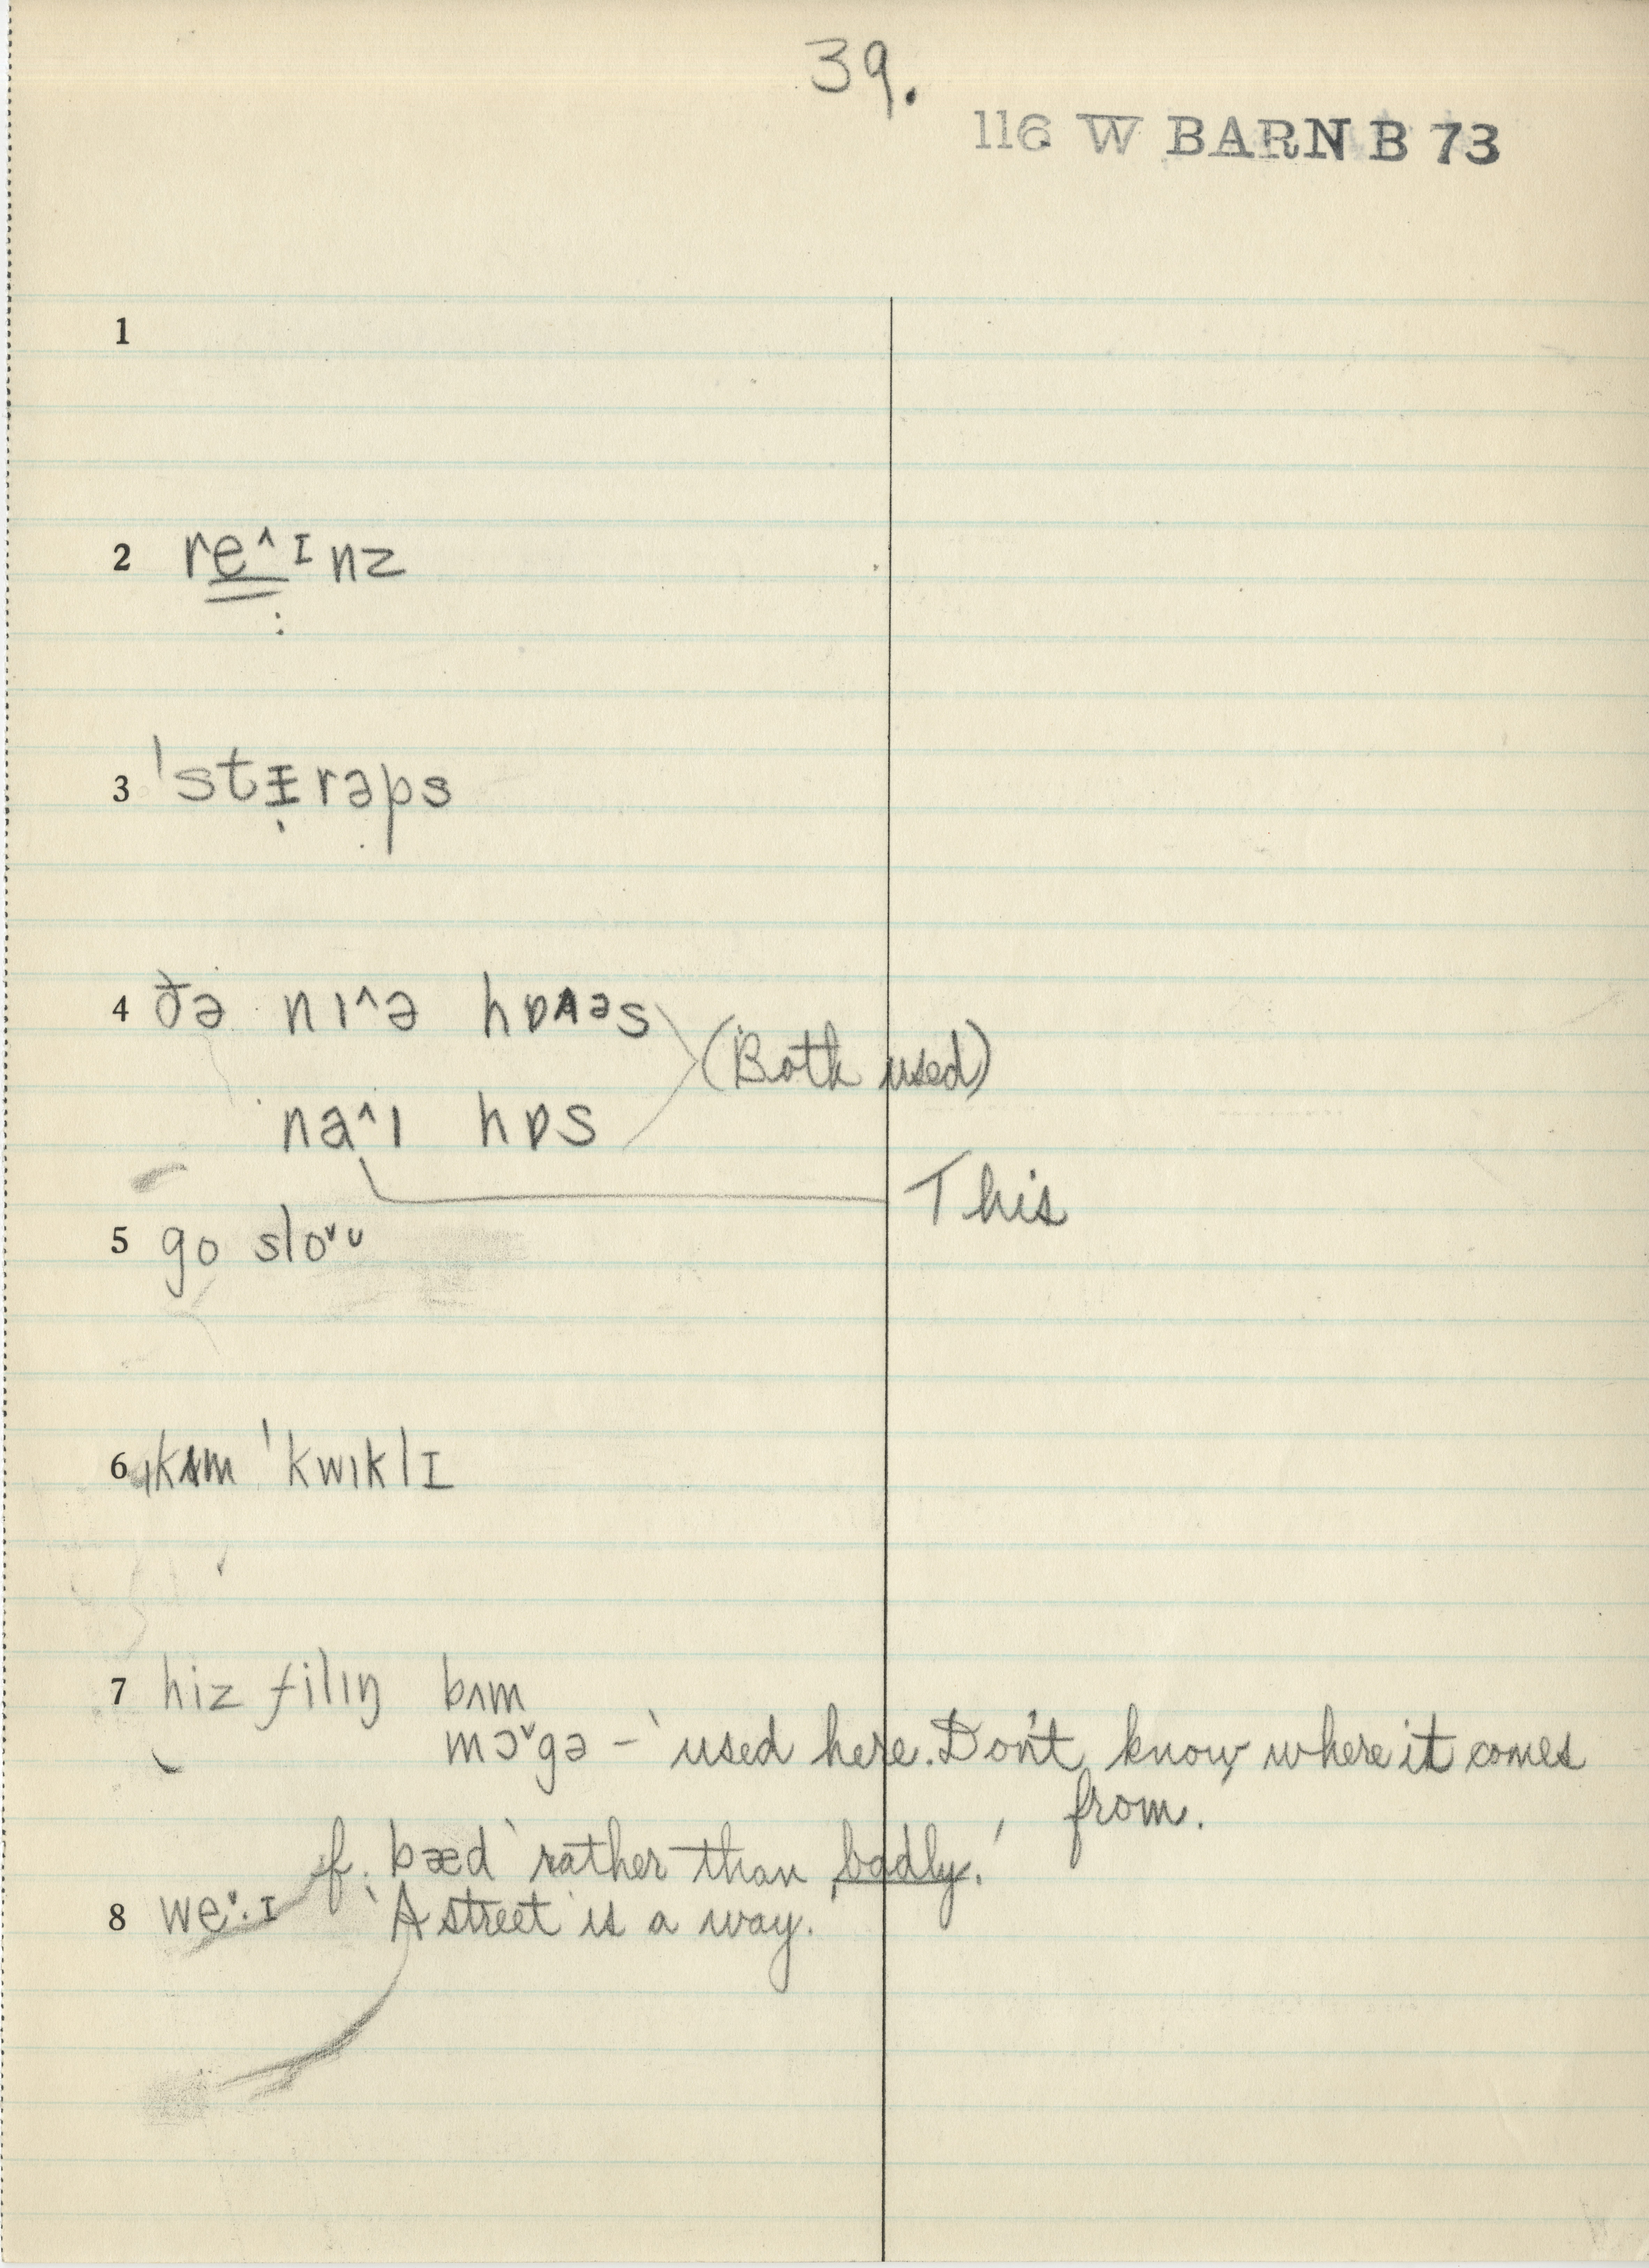 39.
116 W BARN B 73
1
2 re^ɪnz
:
3 ˈstɪ̵rəps
4 ðə nı^ə hɒʌəs
(Both used)
na^ı hɒs
This
5 go sloˇᴜ
6 ˌkʌm ˈkwıklɪ
7 hiz filıŋ bʌm
mɔˇgə – ‵used here. Don't know where it comes
from.′
f. bæd ‵rather than badly.′
8 weˇ·ɪ ‵A street is a way.′